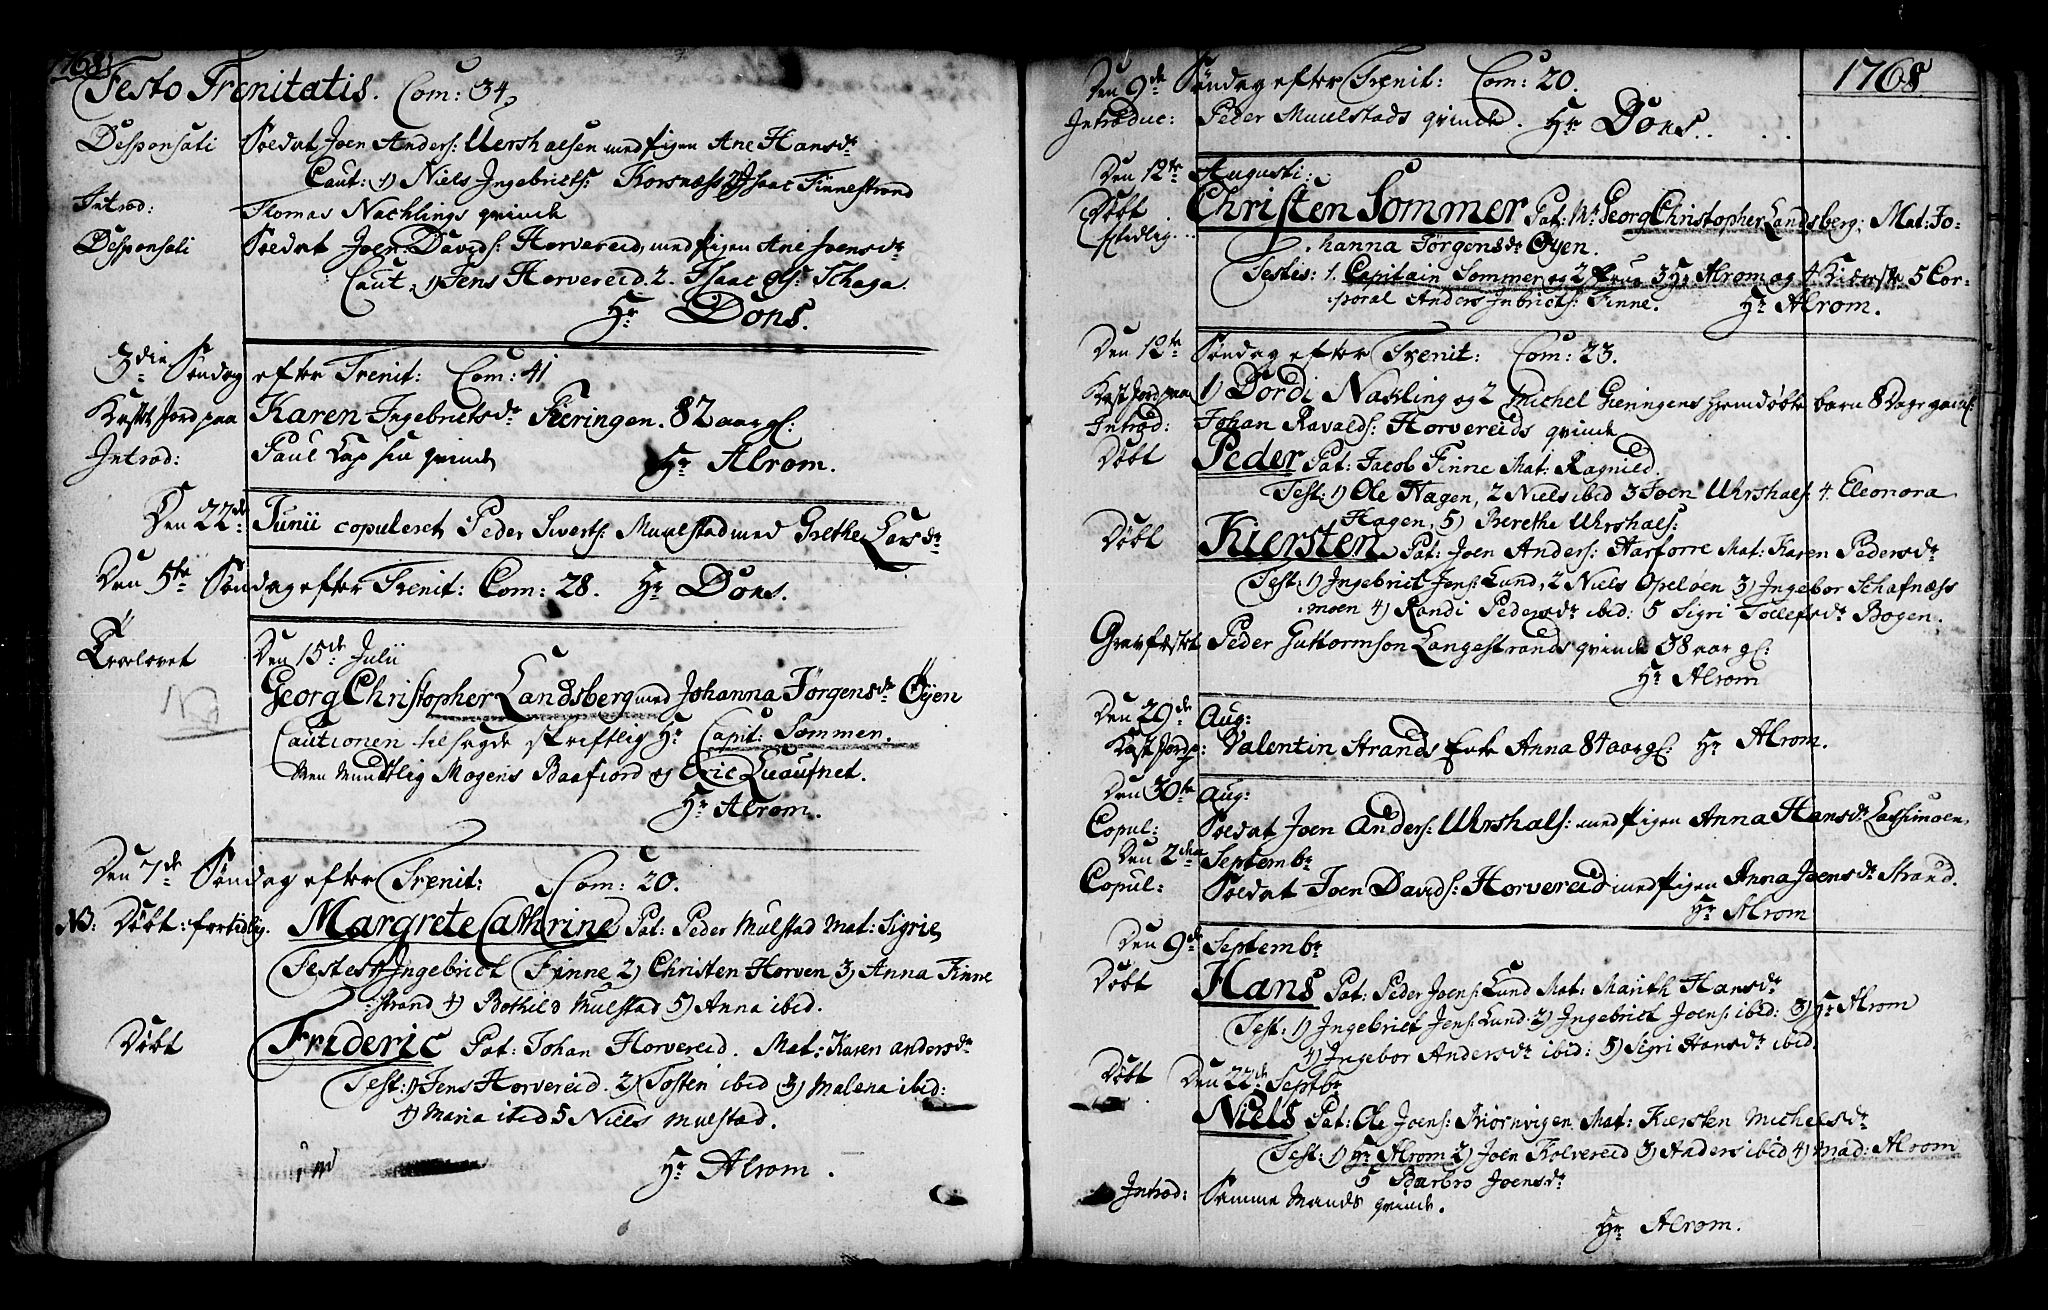 1768
Festo Trenitatis. Com: 34
Desponsati Soldat Joen Anders: Uershalsen med pigen Ane Hansdr
Caut: 1) Niels Ingebricts: Korsnæss 2) Isaac Finnestrand
Introd: Thomas Nachlings qvinde
Desponsati Soldat Joen Davids: Horvereid, med pigen Ane Joensdr
Caut: 1) Jens Horvereid 2. Isaac Ols: Schaga
Hr Dons.
3die Søndag efter Trenit: Com: 41
Kastet Jord paa Karen Ingebrictsdr Pieringen. 82 aar gl:
Introd: Paul qvinde Hr Alrom.
Den 22de Junii copuleret Peder Siverts: Muulstad med Grethe Larsdr
Den 5te Søndag efter Trenit: Com: 28. Hr Dons.
Trolovet Den 15de Julii
Georg Christopher Landsberg med Johanna Jørgensdr Øyen
Cautionen tilsagde skriftlig Hr Capit: Sommer.
Men Mundtlig Mogens Baafiord og Eric
Hr Alrom.
Den 7de Søndag efter Trenit: Com: 20.
NB: Døbt: fortidlig. Margrete Cathrine Pat: Peder Mulstad Mat: Sigrie
Testes 1) Ingebrict Finne 2) Christen Horven 3) Anna Finne
strand 4) Bothild Mulstad 5) Anna ibid.
Døbt Frideric Pat: Johan Horvereid. Mat: Karen Andersdr
Test: 1) Jens Horvereid. 2) Tosten ibid 3) Malena ibid:
4) Maria ibid 5 Niels Mulstad.
Hr Alrom.
1768
Den 9de Søndag efter Trenit: Com: 20.
Introduc: Peder Muulstads qvinde. Hr Dons.
Den 12te Augusti:
Døbt Christen Sommer Pat: Mr Georg Christopher Landsberg, Mat: Jo-
hanna Jørgensdr Øyen.
Testes: 1. Capitain Sommer og 2 Frue 3 Hr Alrom og 4 Kiereste 5 Cor-
poral Anders Inbricts: Finne. Hr Alrom.
Den 12te Søndag efter Trenit: Com: 23.
Kast Jord paa 1) Dordi Nachling og 2 Michel Gieringens hjemdøbte barn 8 Dage
Introd: Johan Ravalds: Horvereids qvinde
Døbt Peder Pat: Jacob Finne Mat: Ragnild.
Test: 1) Ole Hagen, 2 Niels ibid 3 Joen Uhrshals: 4. Eleonora
Hagen, 5) Berethe Uhrshals:
Døbt Kiersten Pat: Joen Anders: Aarforre Mat: Karen Pedersdr
Test: 1) Ingebrict Jens: Lund, 2 Niels Opeløen 3) Ingebor Schafnæss
moen 4) Randi Pedersdr ibid: 5 Sigri Tollefsdr Bogen.
Gravfæstet Peder Guttormson Langestrands qvinde 38 aar gl:
Hr Alrom
Den 29de Aug:
Kast Jord p: Valentin Strands Enke Anna 84 aar gl: Hr Alrom.
Den 30te Aug:
Copul: Soldat Joen Anders: Uhrshals: med pigen Anna Hansdr
Den 2den Septembr
Copul: Soldat Joen Davids: Horvereid med pigen Anna Joensdr Strand.
Hr Alrom
Den 9de Septembr
Døbt Hans Pat: Peder Joens: Lund Mat: Marith Hansdr
Test: 1) Ingebrict Jens: Lund: 2) Ingebrict Joens: ibid: 3) Hr Alrom
4) Ingebor Andersdr ibid: 5) Sigri Hansdr ibid.
Døbt Den 22de Septbr
Niels Pat: Ole Joens: Biornvigen Mat: Kiersten Michelsdr
Test: 1) Hr Alrom 2) Joen Kolvereid 3) Anders ibid 4) Mad: Alrom
5 Barbro Joensdr
Introd: Samme Mands qvinde.
Hr Alrom.